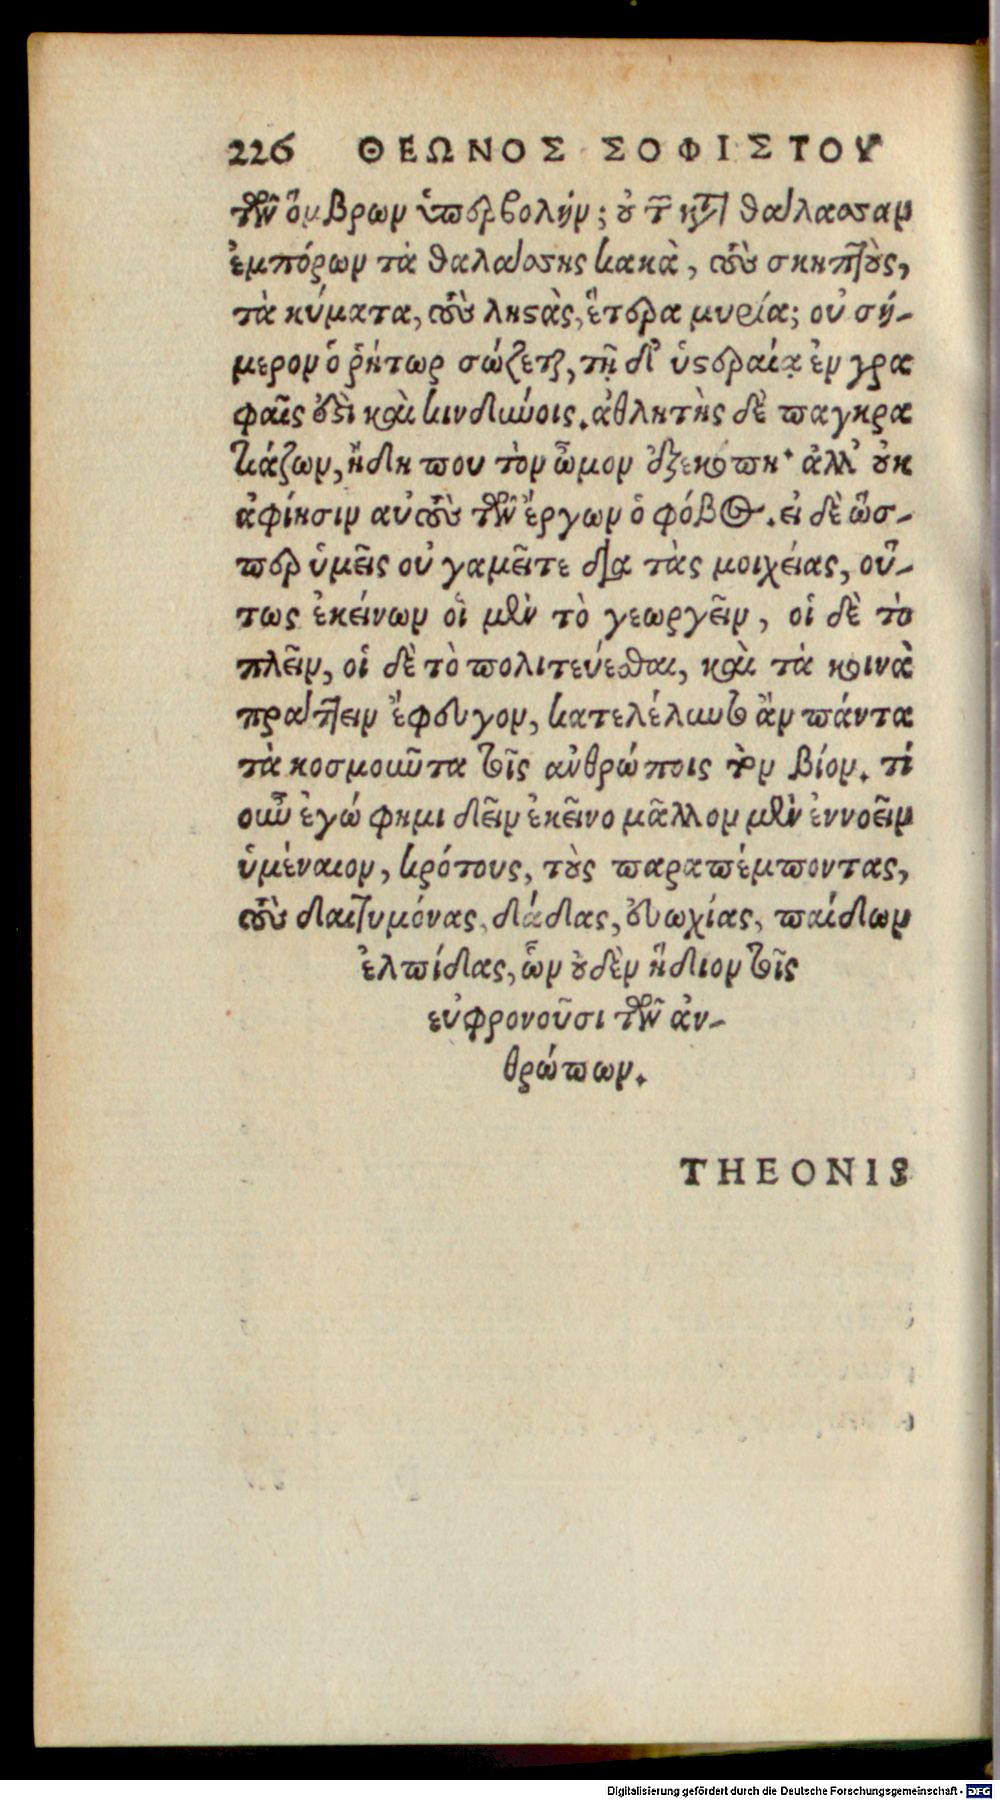 226 ΘΕΩΝΟΣ ΣΟΦΙΣΤΟΥ
τῶν ὄμβρων ὑπερβολήν; οὐ τῶν κατὰ θάλασσαν
ἐμπόρων τὰ θαλάσσης κακὰ, τοὺς σκηπτοὺς,
τὰ κύματα, τοὺς λῃστὰς, ἕτερα μυρία; οὐ σή-
μερον ὁ ῥήτωρ σώζεται, τῇ δ' ὑστεραίᾳ ἐν γρα
φαῖς ἐστὶ καὶ κινδύνοις. ἀθλητὴς δὲ παγκρα
τιάζων, ἤδη που τὸν ὦμον ἐξεκόπη· ἀλλ' οὐκ
ἀφίησιν αὐτοὺς τῶν ἔργων ὁ φόβος. εἰ δὲ ὥσ-
περ ὑμεῖς οὐ γαμεῖτε διὰ τὰς μοιχείας, οὕ-
τως ἐκείνων οἱ μὲν τὸ γεωργεῖν, οἱ δὲ τὸ
πλεῖν, οἱ δὲ τὸ πολιτεύεσθαι, καὶ τὰ κοινὰ
πράττειν ἔφευγον, κατελέλυτο ἂν πάντα
τὰ κοσμοῦντα τοῖς ἀνθρώποις τὸν βίον. τί
οὖν ἐγώ φημι δεῖν ἐκεῖνο μᾶλλον μὲν ἐννοεῖν
ὑμέναιον, κρότους, τοὺς παραπέμποντας,
τοὺς δαιτυμόνας, δᾴδας, εὐωχίας, παίδων
ἐλπίδας, ὧν οὐδὲν ἥδιον τοῖς
εὐφρονοῦσι τῶν ἀν-
θρώπων.
THEONIS
Digitalisierung gefördert durch die Deutsche Forschungsgemeinschaft - DFG